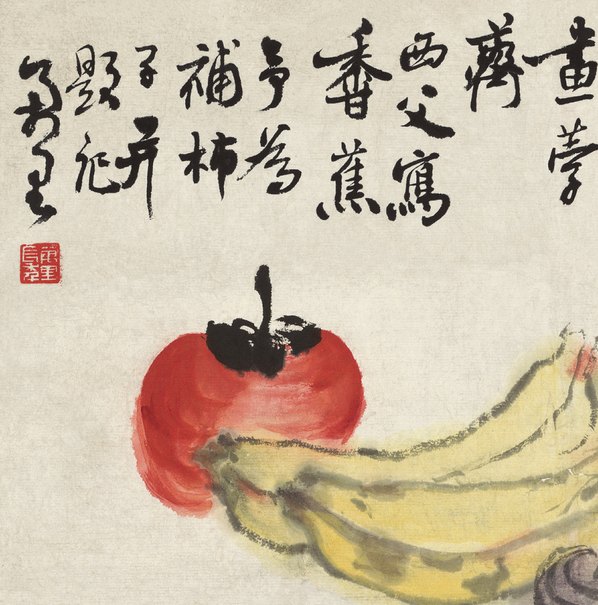 畫荸
薺
西父寫
香蕉
予為
補柿
子并
題記